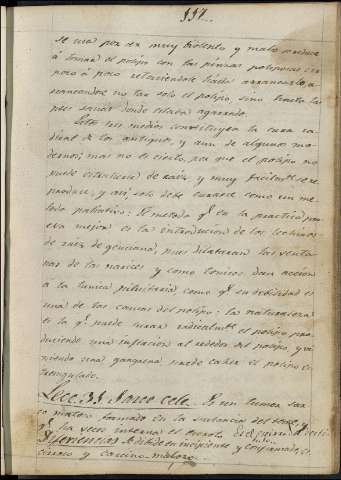 337.
se usa por ser muy violento y malo reduce
á tomar el polipo con las pinzas poliposas con
poco á poco retorciendole hasta arrancarlo, a
rrancandose no tan solo el polipo, sino hasta la
pues sacar donde estaba agarrado.
Estos tres medios constituyen la cura ra
dical de los antiguos, y aun de algunos mo
dernos; mas no es cierto, por que el polipo no
puede extraerse de raiz y muy facilmte se re
produce, y asi solo debe curarse como un me
todo paliativo: El metodo qe en la practica
mejor es la introduccion de los lechinos
de raiz de genciana, pues dilataran las venta
nas de las narices y como tonicos dan accion
á la tunica pituitaria como qe su debilidad es
una de las causas del polipo: la naturaleza
es la qe puede curar radicalmte el polipo pro
duciendo una inflacion al rededor del polipo, y vi
niendo una gangrena puede caher el polipo es
trangulado.
Lecc. 33 Sarco cele. Es un tumor sar
comatoso formado en la sustancia del teste, y
qe ha
Diferencias Se divide en incipiente y confirmado, en
cirroso y carcino-matoso.